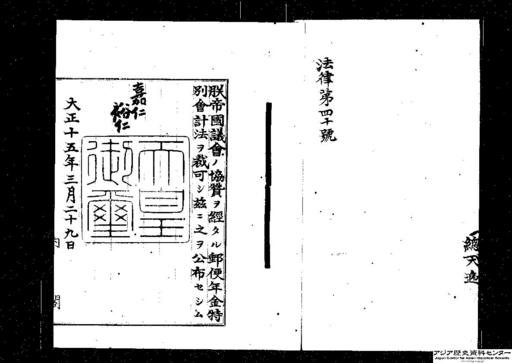 法律第四十號
朕帝國議會ノ協贊ヲ經タル郵便年金特
別會計法ヲ裁可シ茲ニ之ヲ公布セシム
嘉仁
裕仁
天皇
御璽
大正十五年三月二十九日
内閣
アジア歴史資料センター
Japan Center for Asian Historical Records